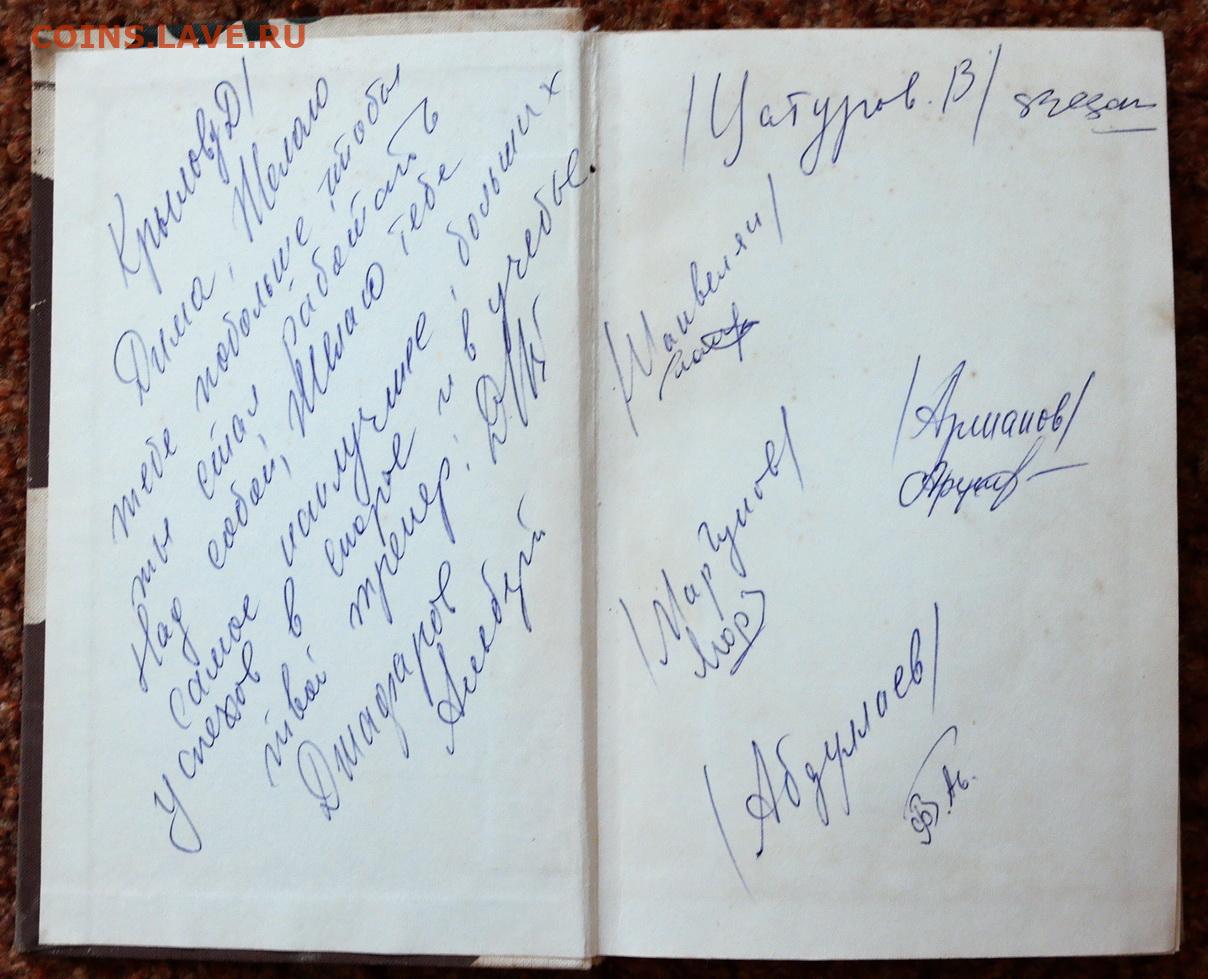 COINS.LAVE.RU
Крылову Д/
Дима, Желаю
тебе побольше чтобы
ты стал работать
над собой, Желаю тебе
самое наилучшие, больших
успехов в спорте и в учебы.
твой тренер:
Джафаров
Альберт
/Цатуров. В/
/Манвелян/
/Арманов/
/Маргунов/
Мар
/Абдуллаев/